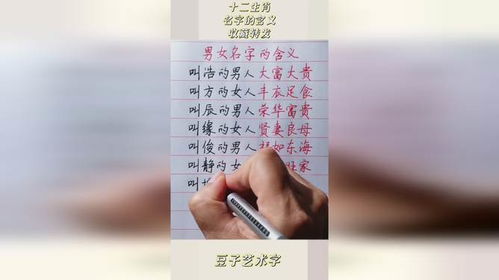 十二生肖
名字的含义
收藏转发
男女名字的含义
叫浩的男人大富大贵
叫方的女人丰衣足食
叫辰的男人荣华富贵
叫缘的女人贤妻良母
叫俊的男人福如东海
叫静的女
家
叫
豆子艺术字